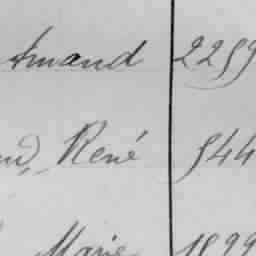 Amand 2259
René 544
Marie 1899